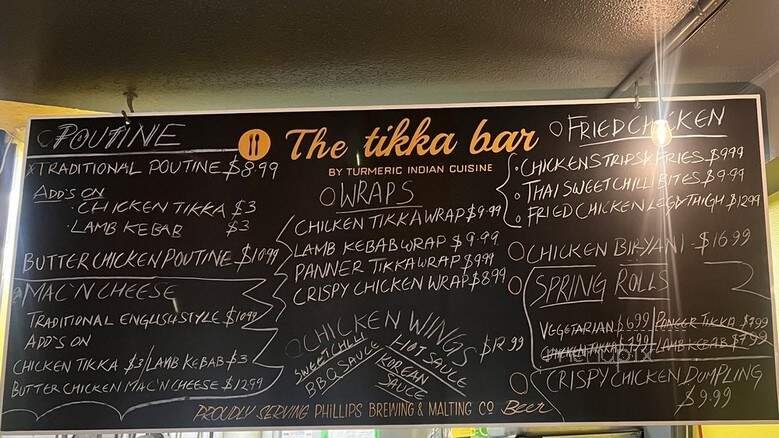 POUTINE
TRADITIONAL POUTINE $8.99
ADD'S ON
· CHICKEN TIKKA $3
· LAMB KEBAB $3
BUTTER CHICKEN POUTINE $10.99
MAC'N CHEESE
TRADITIONAL ENGLISH STYLE $10.99
ADD'S ON
CHICKEN TIKKA $3 / LAMB KEBAB $3
BUTTER CHICKEN MAC'N CHEESE $12.99
The tikka bar
BY TURMERIC INDIAN CUISINE
WRAPS
CHICKEN TIKKA WRAP $9.99
LAMB KEBAB WRAP $9.99
PANNER TIKKA WRAP $9.99
CRISPY CHICKEN WRAP $8.99
CHICKEN WINGS $12.99
SWEET CHILLI
BBQ SAUCE
HOT SAUCE
KOREAN SAUCE
PROUDLY SERVING PHILLIPS BREWING & MALTING CO Beer
FRIED CHICKEN
· CHICKEN STRIPS & FRIES $9.99
· THAI SWEET CHILLI BITES $9.99
· FRIED CHICKEN LEG/THIGH $12.99
CHICKEN BIRYANI - $16.99
SPRING ROLLS
VEGETARIAN $6.99 / PANEER TIKKA $7.99
CHICKEN TIKKA $7.99 / LAMB KEBAB $7.99
CRISPY CHICKEN DUMPLING
$9.99